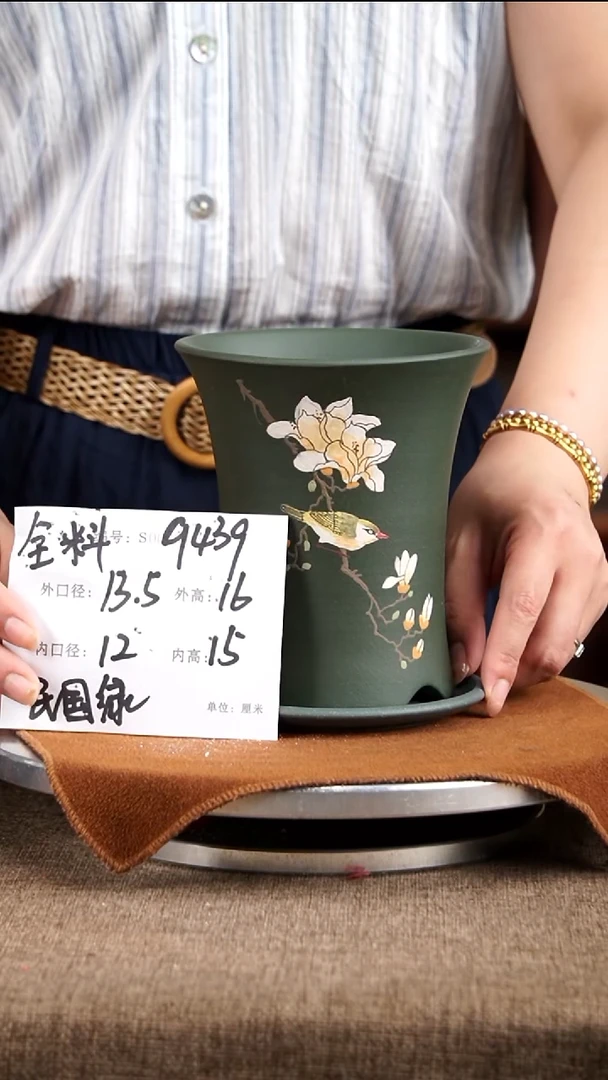 全料 编号: S 9439
外口径: 13.5 外高: 16
内口径: 12 内高: 15
民国绿 单位: 厘米